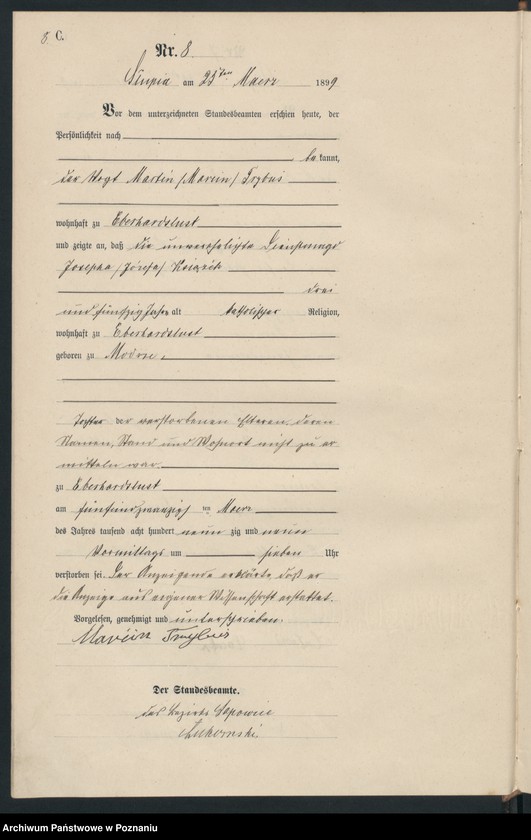 8. C.
Nr. 8.
Słupia am 25ten Maerz 1899
Vor dem unterzeichneten Standesbeamten erschien heute, der
Persönlichkeit nach
be kannt,
der Vogt Martin /Marcin/ Trybus
wohnhaft zu Eberhardslust
und zeigte an, daß die unverehelichte
Josepha /Józefa/
drei
und fünfzig Jahre alt katholischer Religion,
wohnhaft zu Eberhardslust
geboren zu
Tochter der verstorbenen Eltern, deren
Namen, Stand und Wohnort nicht zu er
mitteln war.
zu Eberhardslust
am fünfundzwanzigsten Maerz
des Jahres tausend acht hundert neun zig und neun
Vormittags um sieben Uhr
verstorben sei. Der Anzeigende erklärte, daß er
die Anzeige aus eigener Wissenschaft erstattet.
Vorgelesen, genehmigt und unterschrieben.
Marcin Trybus
Der Standesbeamte.
des Bezirks Sapowice
Archiwum Państwowe w Poznaniu